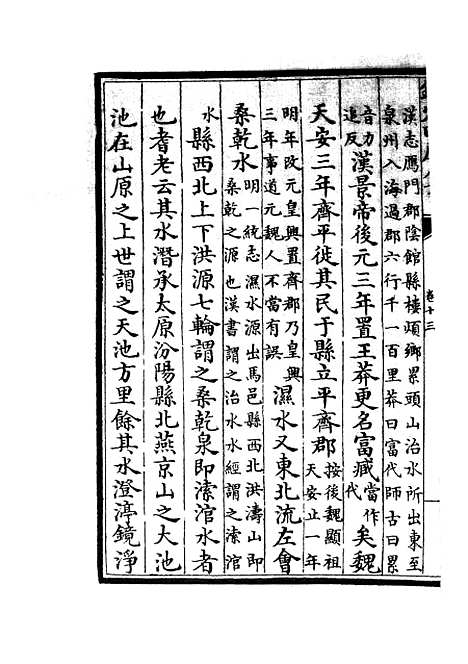 卷十三
漢志鴈門郡陰館縣樓頭鄉累頭山治水所出東至
泉州入海過郡六行千一百里莽曰富代師古曰累
音力
追反
漢景帝後元三年置王莽更名富臧
當作
代
矣魏
天安三年齊平徙其民于縣立平齊郡
按後魏顯祖
天安立一年
明年改元皇興置齊郡乃皇興
三年事道元魏人不當有誤
㶟水又東北流左會
桑乾水
明一統志㶟水源出馬邑縣西北洪濤山即
桑乾之源也漢書謂之治水水經謂之溹涫
水
縣西北上下洪源七輪謂之桑乾泉即溹涫水者
也耆老云其水潛承太原汾陽縣北燕京山之大池
池在山原之上世謂之天池方里餘其水澄渟鏡淨